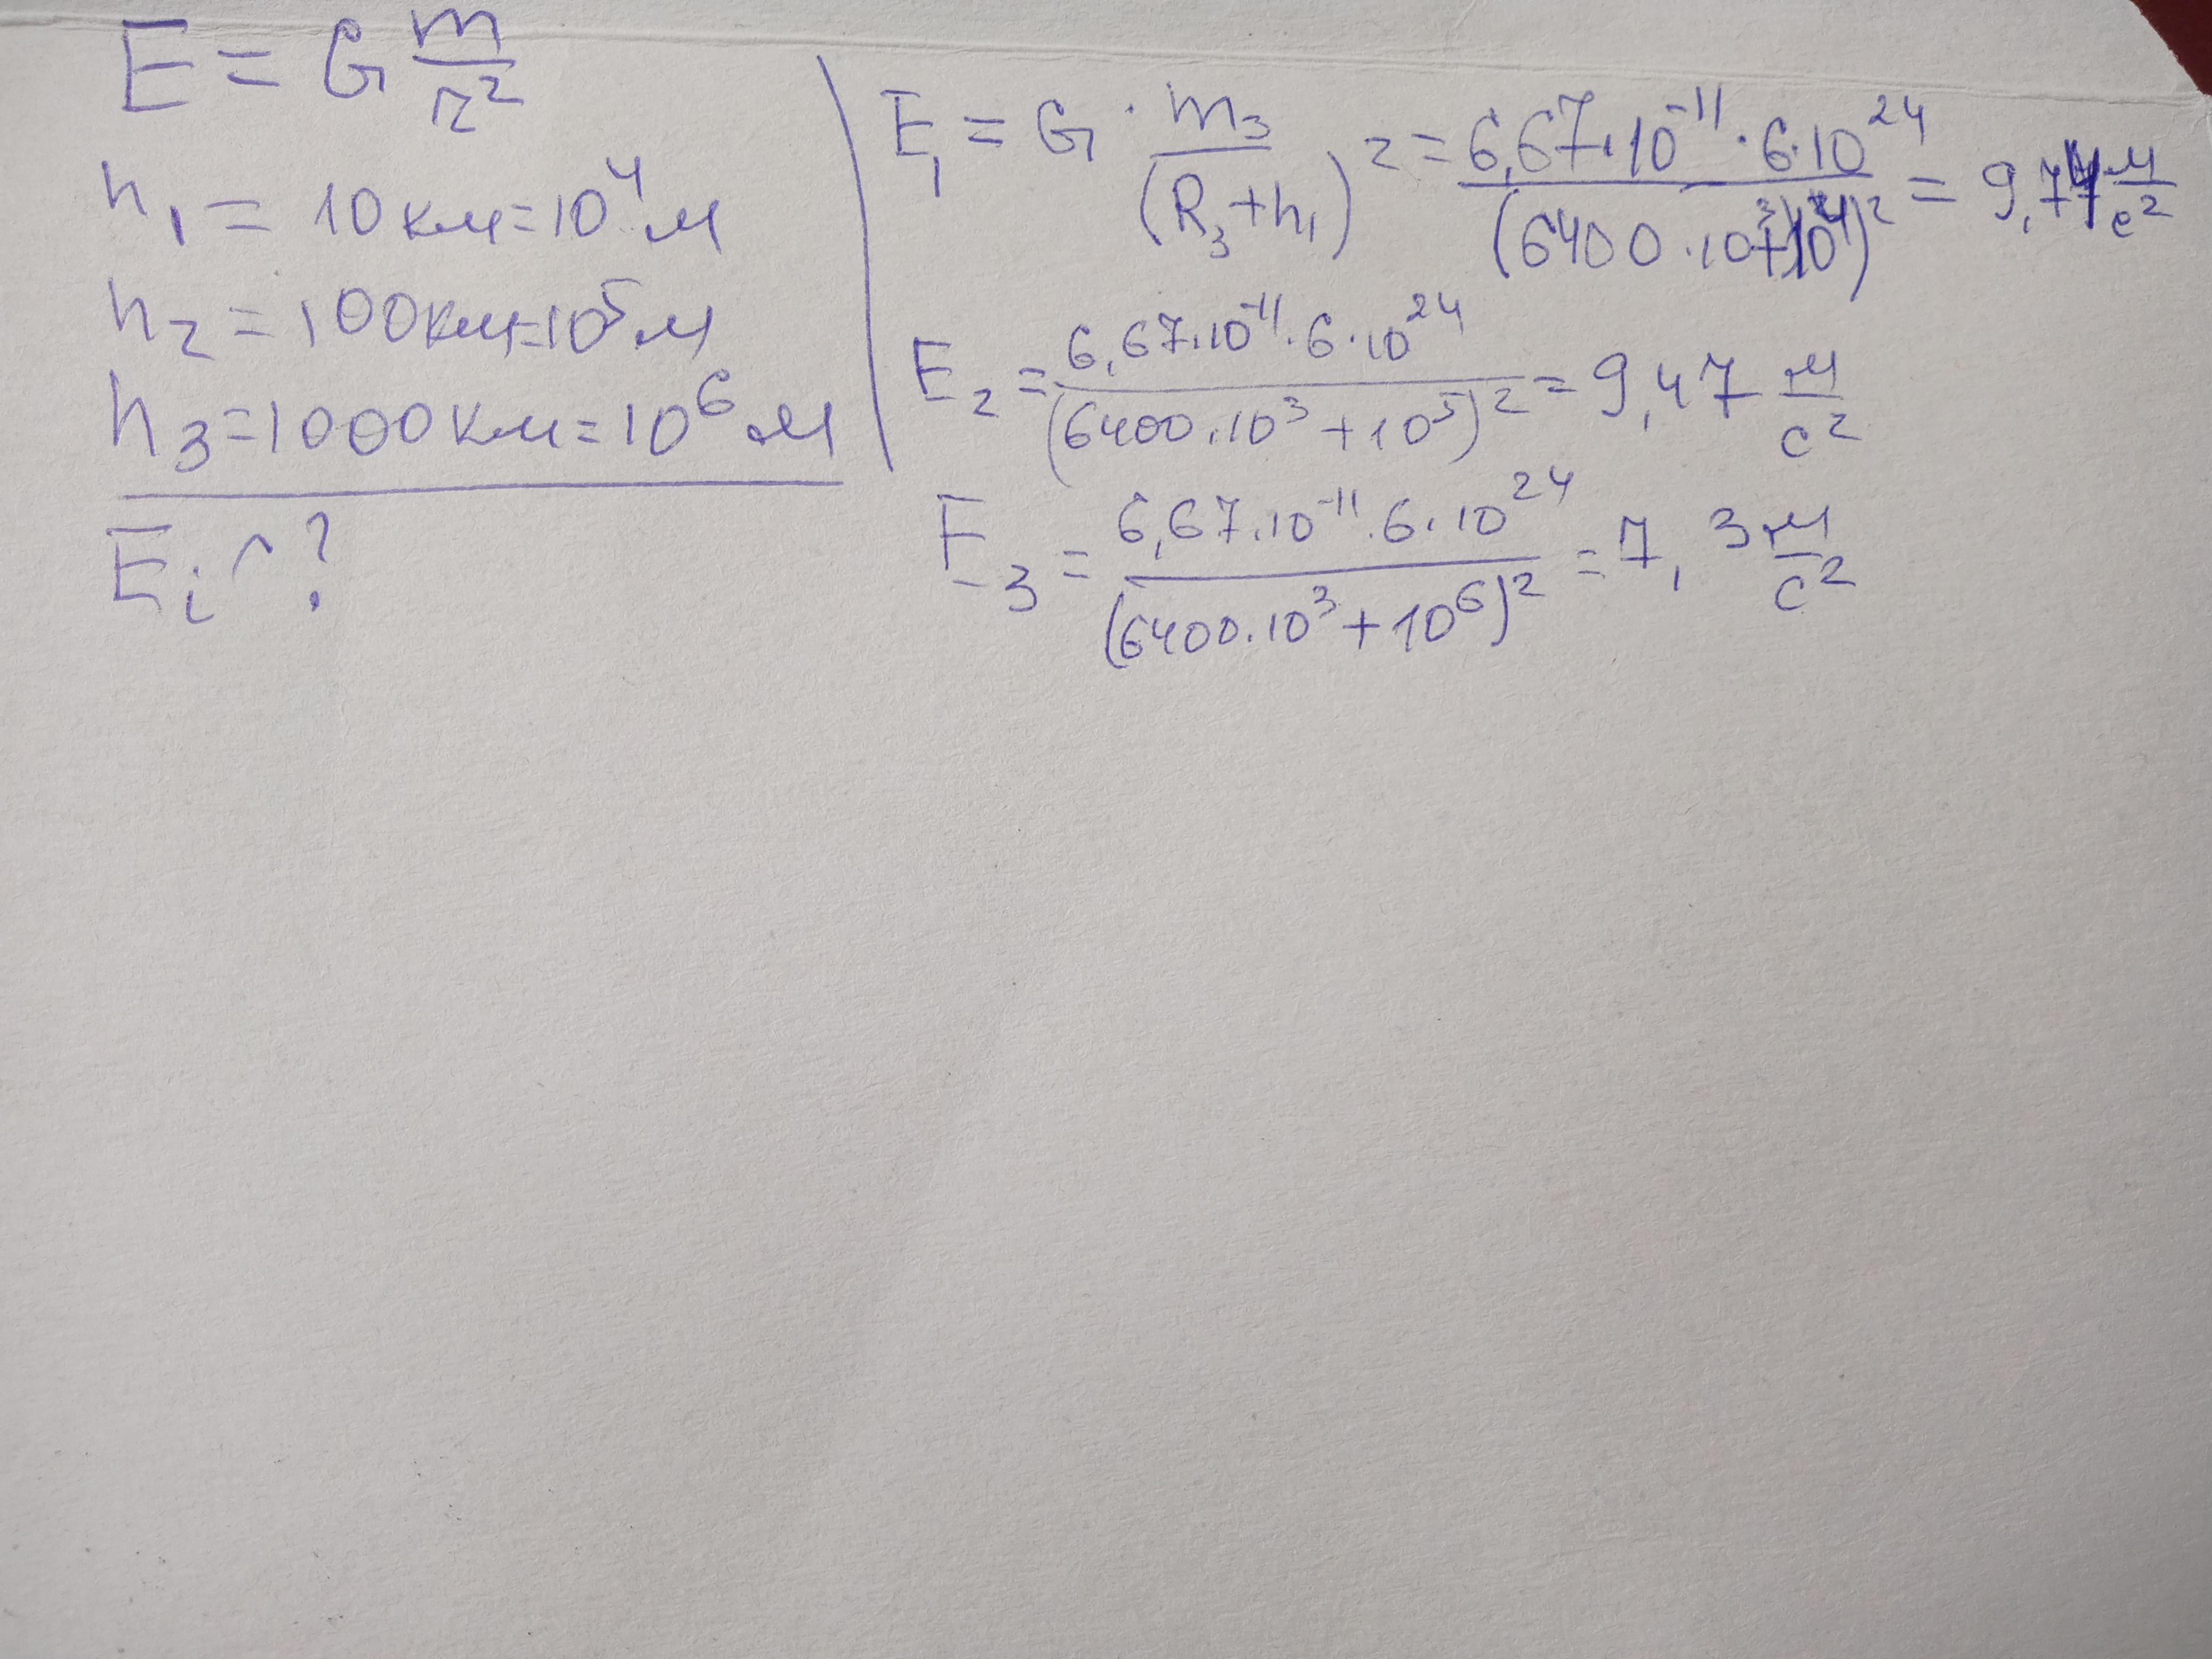 E = G m/r²
h₁ = 10 км = 10⁴ м
h₂ = 100 км = 10⁵ м
h₃ = 1000 км = 10⁶ м
Eᵢ - ?
E₁ = G · m₃/(R₃ + h₁)² = 6,67·10⁻¹¹·6·10²⁴/(6400·10³+10⁴)² = 9,74 м/с²
E₂ = 6,67·10⁻¹¹·6·10²⁴/(6400·10³+10⁵)² = 9,47 м/с²
E₃ = 6,67·10⁻¹¹·6·10²⁴/(6400·10³+10⁶)² = 7,3 м/с²